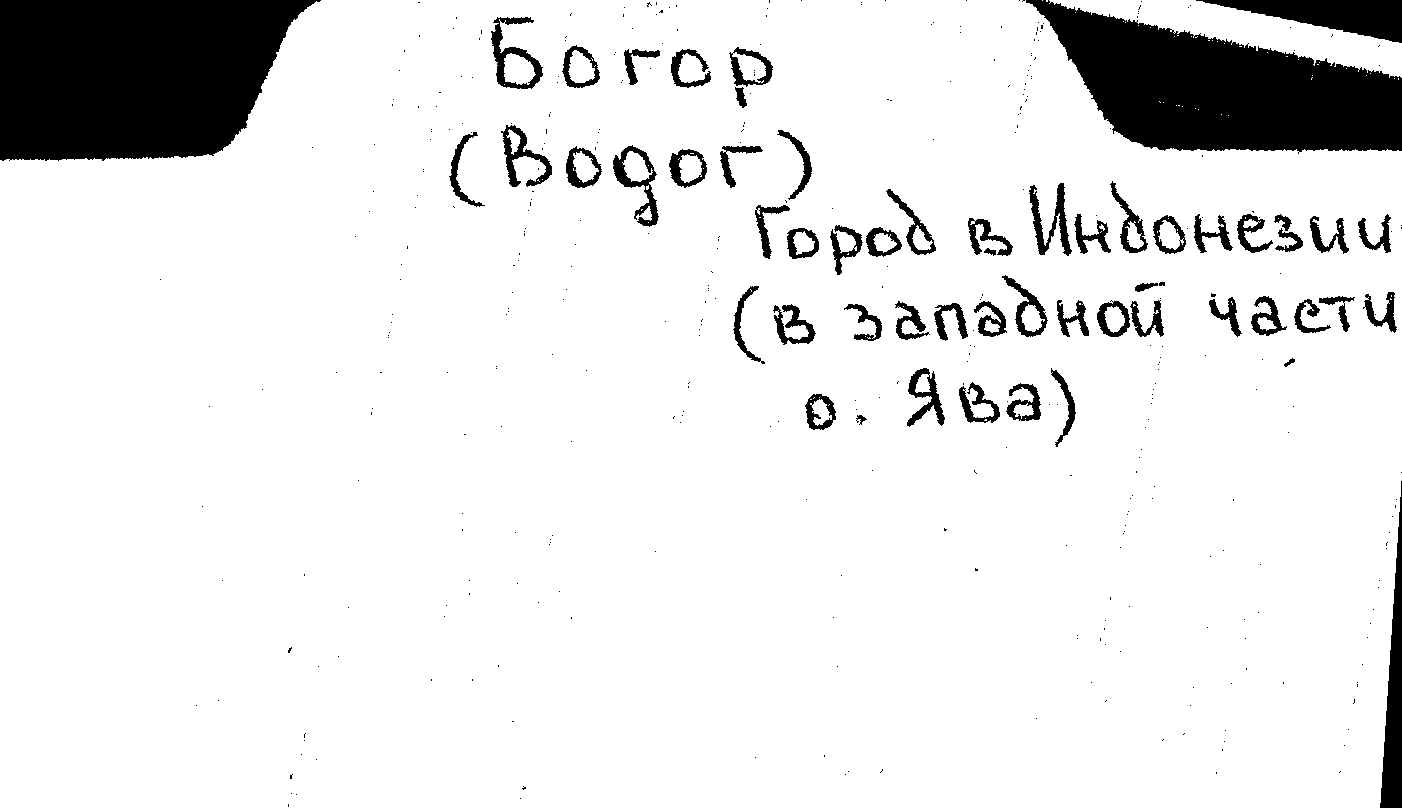 Богор
(Bogor)
Город в Индонезии
(в западной части
о. Ява)